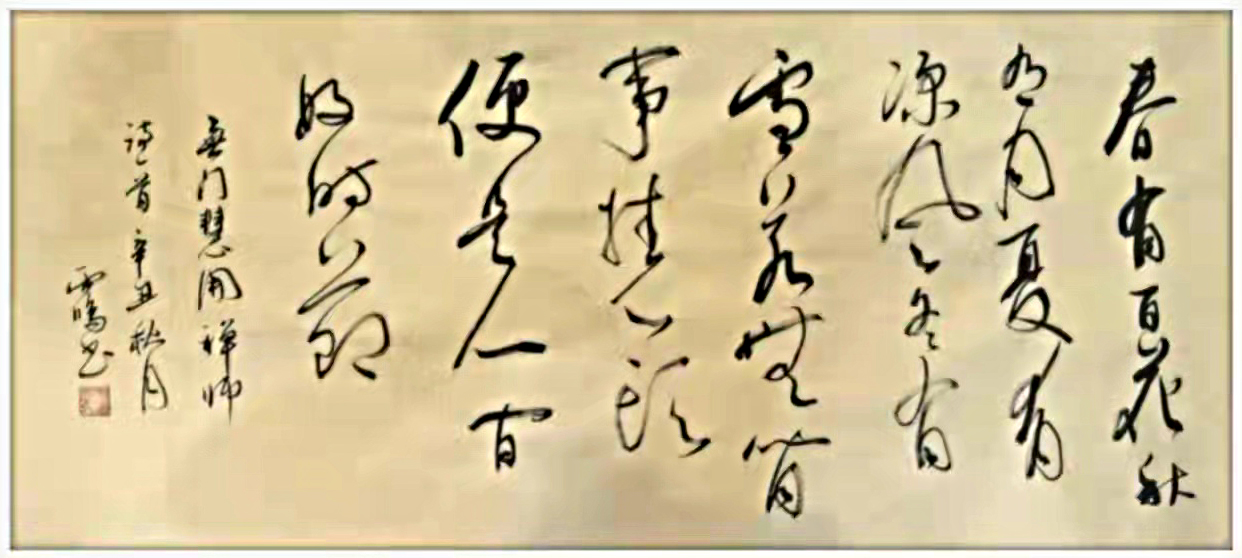 春有百花秋
有月夏有
凉风冬有
雪若無閒
事挂心头
便是人间
好时节
無门慧開禅师
诗一首 辛丑秋月